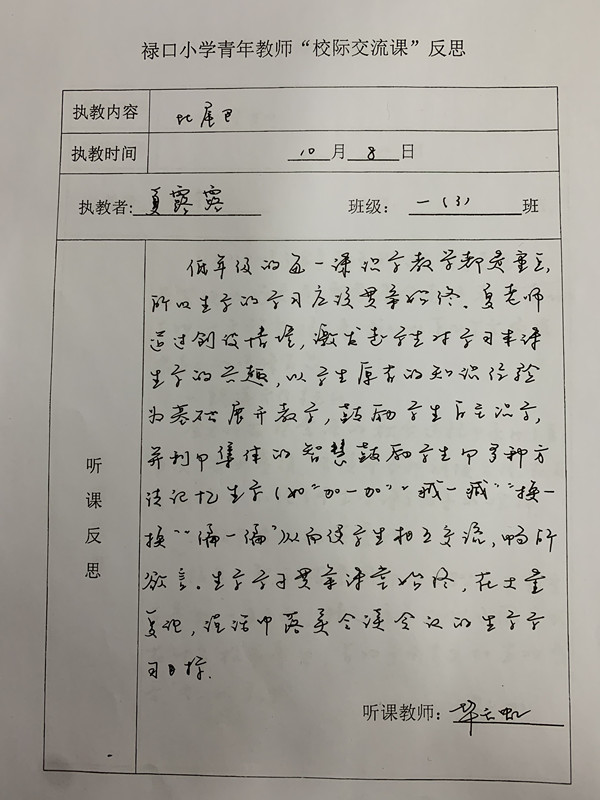 禄口小学青年教师“校际交流课”反思
执教内容 比尾巴
执教时间 10月8日
执教者:夏露露 班级：一（3）班
听课反思
低年级的每一课识字教学都是重点，
所以生字的学习应该贯串始终。夏老师
通过创设情境，激发起学生对学习本课
生字的兴趣，以学生原有的知识经验
为基础展开教学，鼓励学生自主识字，
并利用集体的智慧鼓励学生用多种方
法记忆生字（如“加一加”“减一减”“换一
换”“编一编”）从而使学生相互交流，畅所
欲言。生字学习贯串课堂始终，在大量
复现，活中落实会读会认的生字学
习目标。
听课教师：